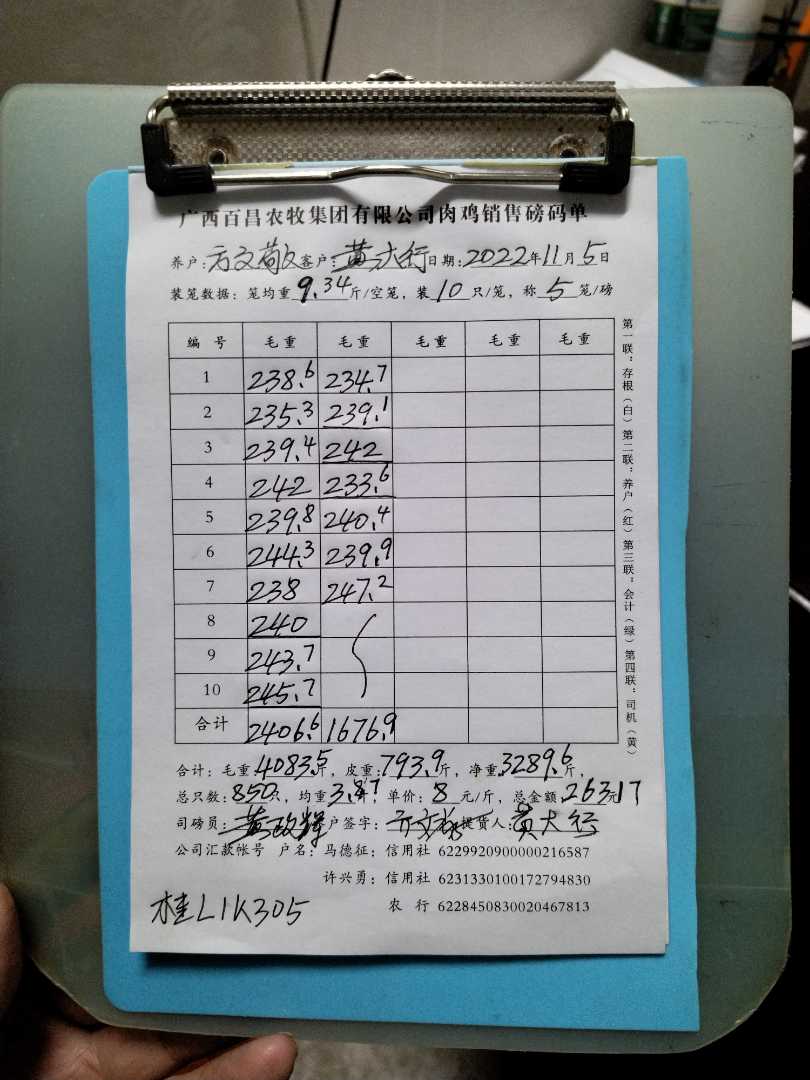 广西百昌农牧集团有限公司肉鸡销售磅码单
养户：方文敬 客户：黄大行 日期：2022年11月5日
装笼数据：笼均重9.34斤/空笼，装10只/笼，称5笼/磅
编号 毛重 毛重 毛重 毛重 毛重
1 238.6 234.7
2 235.3 239.1
3 239.4 242
4 242 233.6
5 239.8 240.4
6 244.3 239.9
7 238 247.2
8 240
9 243.7
10 245.7
合计 2406.6 1676.9
合计：毛重4083.5斤，皮重：793.9斤，净重3289.6斤，
总只数：850只，均重3.87斤，单价：8元/斤，总金额26317元
司磅员：黄政辉 客户签字：方文敬 提货人：黄大行
公司汇款帐号 户名：马德征：信用社 6229920900000216587
许兴勇：信用社 6231330100172794830
农行 6228450830020467813
桂L1K305
第一联：存根（白）第二联：养户（红）第三联：会计（绿）第四联：司机（黄）